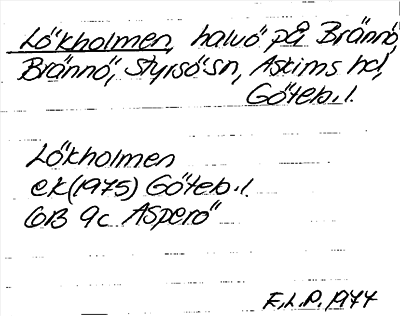 Lökholmen, halvö på Brännö,
Brännö, Styrsö sn, Askims hd,
Göteb. l.
Lökholmen
ek (1975) Göteb. l.
6B 9c Asperö
F.L.P. 1977